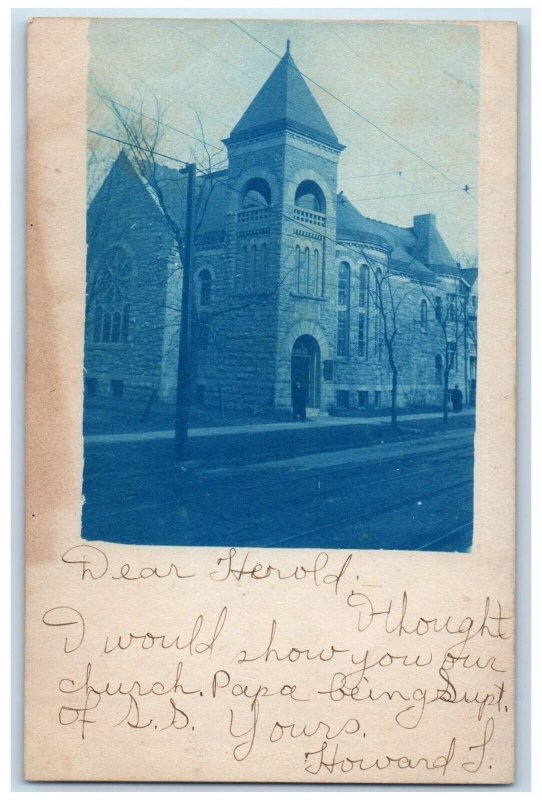 Dear Herold;—
I thought
I would show you our
church. Papa being Supt.
of S.S. Yours.
Howard I.